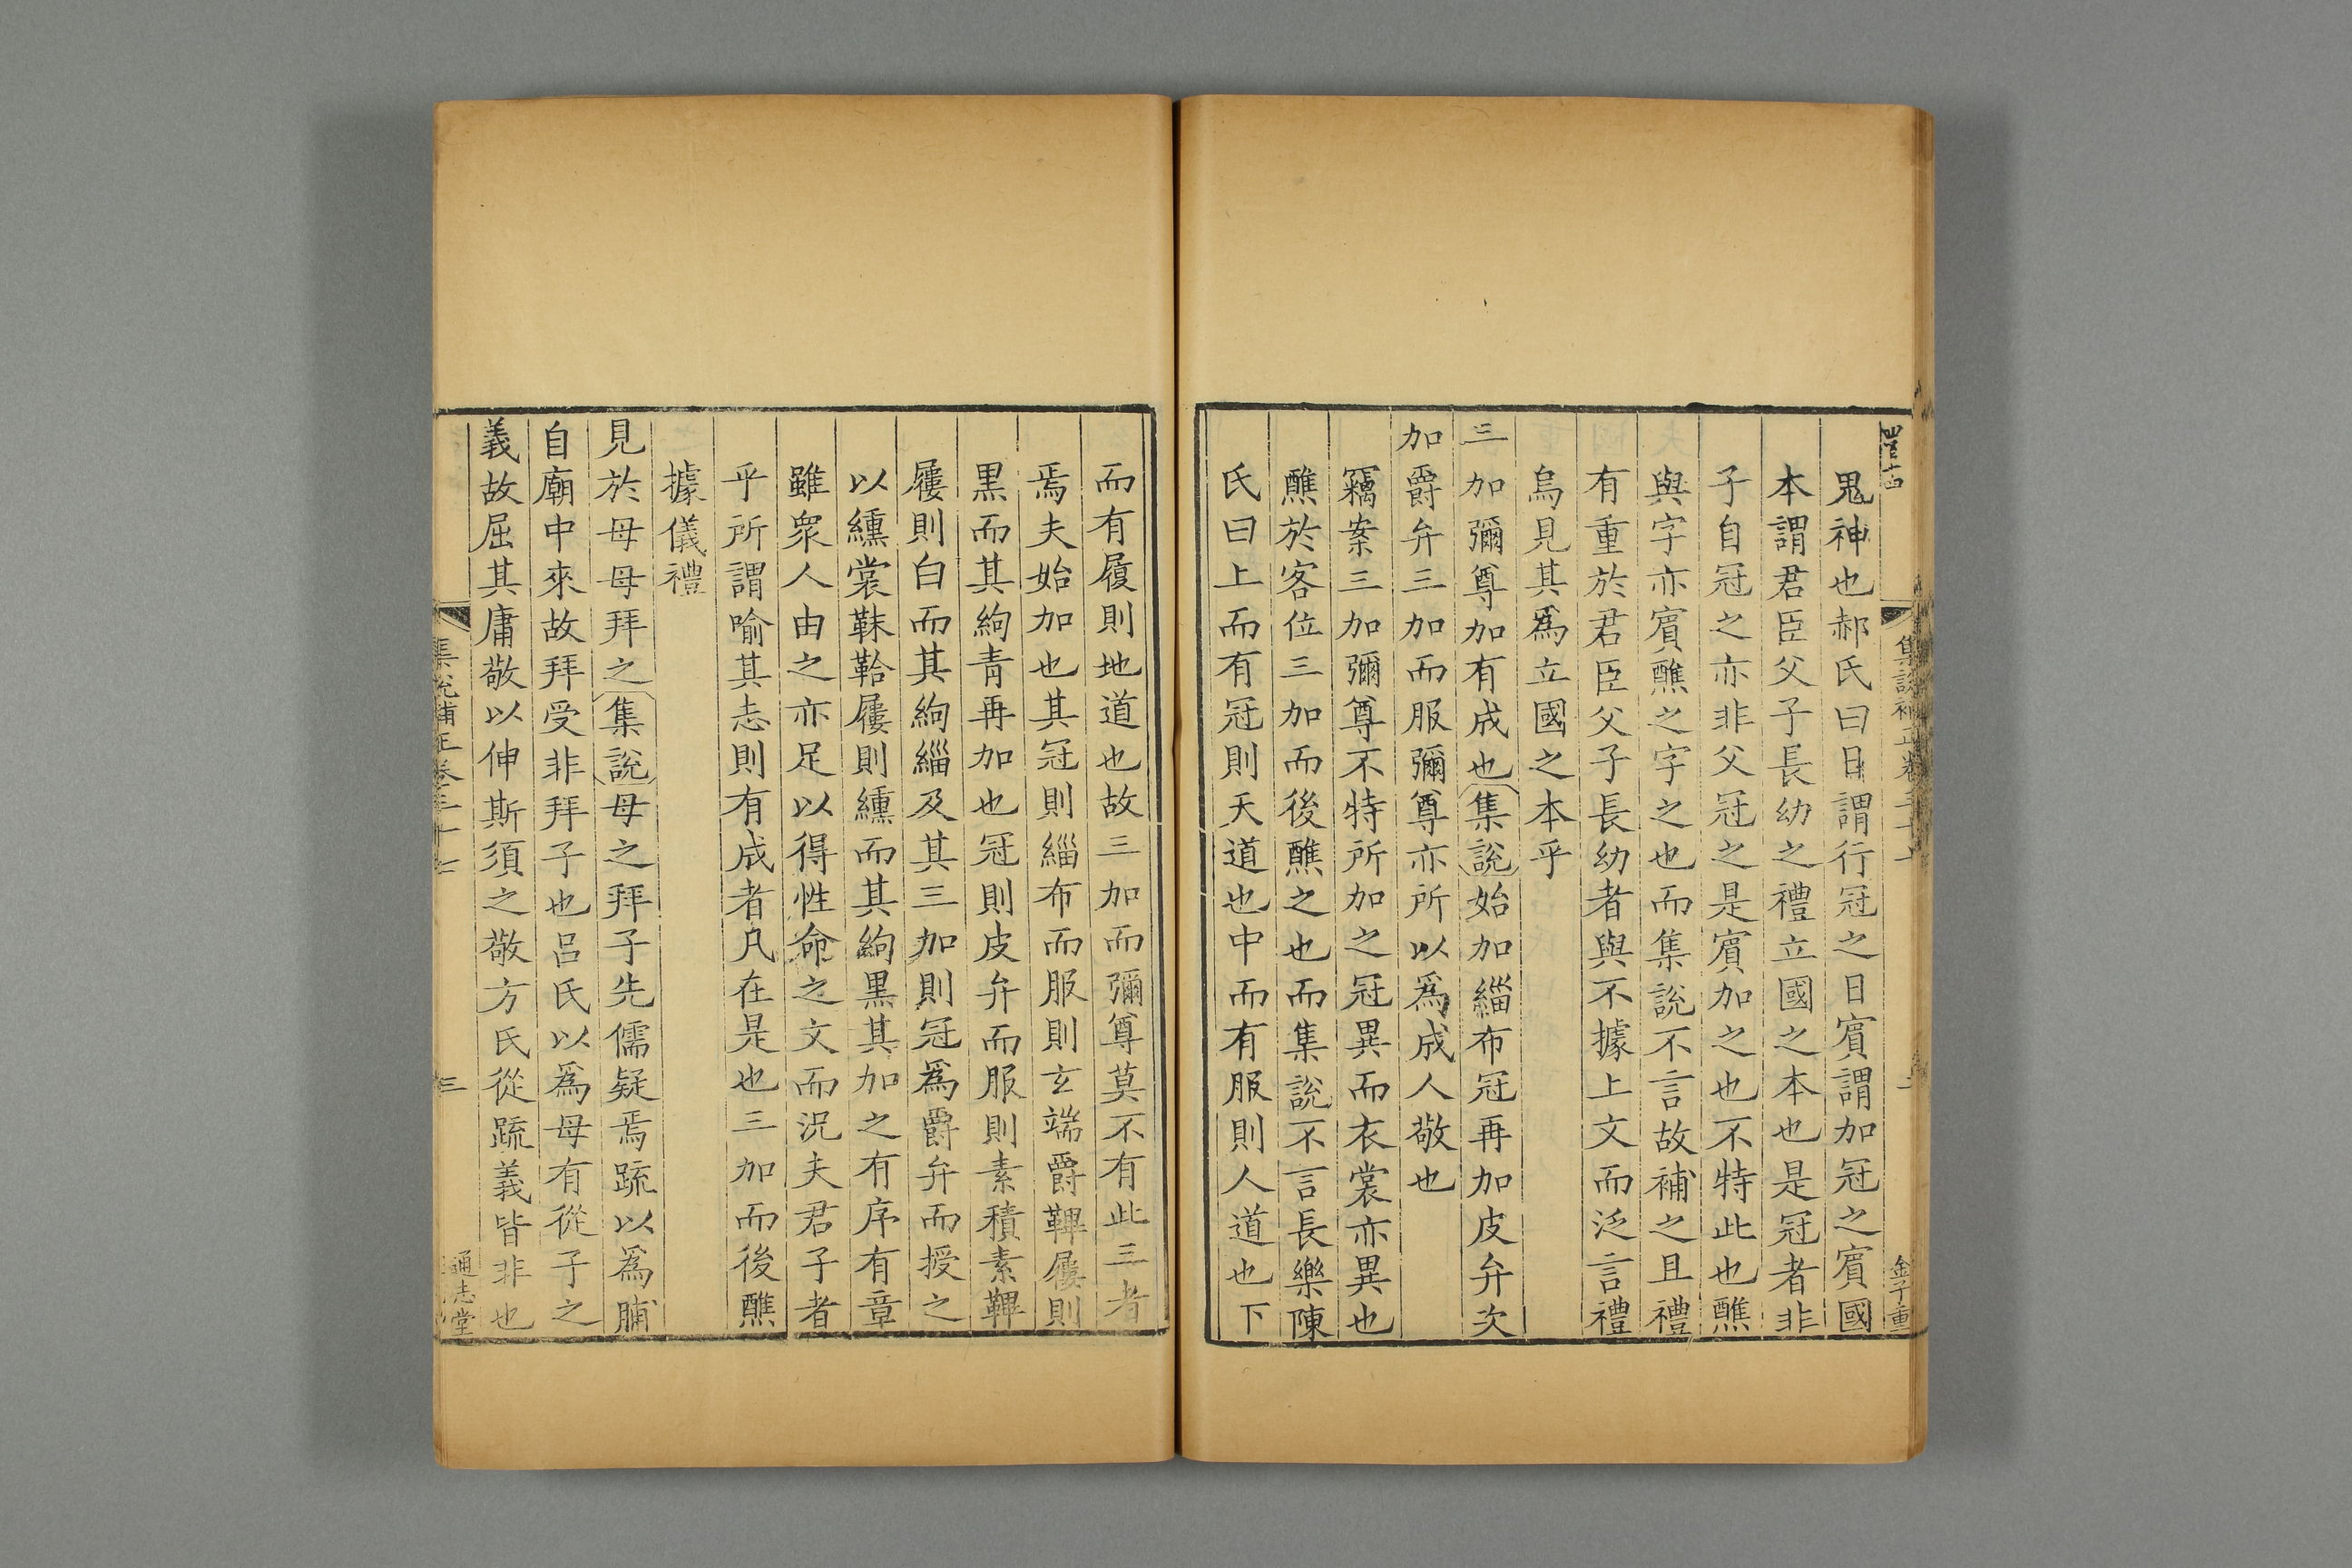 集說補正卷三十七
金子重
鬼神也郝氏曰日謂行冠之日賔謂加冠之賔國
本謂君臣父子長幼之禮立國之本也是冠者非
子自冠之亦非父冠之是賔加之也不特此也醮
與字亦賔醮之字之也而集說不言故補之且禮
有重於君臣父子長幼者與不據上文而泛言禮
烏見其爲立國之本乎
三加彌尊加有成也集說始加緇布冠再加皮弁次
加爵弁三加而服彌尊亦所以爲成人敬也
竊案三加彌尊不特所加之冠異而衣裳亦異也
醮於客位三加而後醮之也而集說不言長樂陳
氏曰上而有冠則天道也中而有服則人道也下
而有履則地道也故三加而彌尊莫不有此三者
焉夫始加也其冠則緇布而服則玄端爵鞸屨則
黒而其絇青再加也冠則皮弁而服則素積素鞸
屨則白而其絇緇及其三加則冠爲爵弁而授之
以纁裳韎韐屨則纁而其絇黒其加之有序有章
雖衆人由之亦足以得性命之文而況夫君子者
乎所謂喻其志則有成者凡在是也三加而後醮
據儀禮
見於母母拜之集說母之拜子先儒疑焉疏以爲脯
自廟中來故拜受非拜子也呂氏以爲母有從子之
義故屈其庸敬以伸斯須之敬方氏從疏義皆非也
集說補正卷三十七
三
通志堂